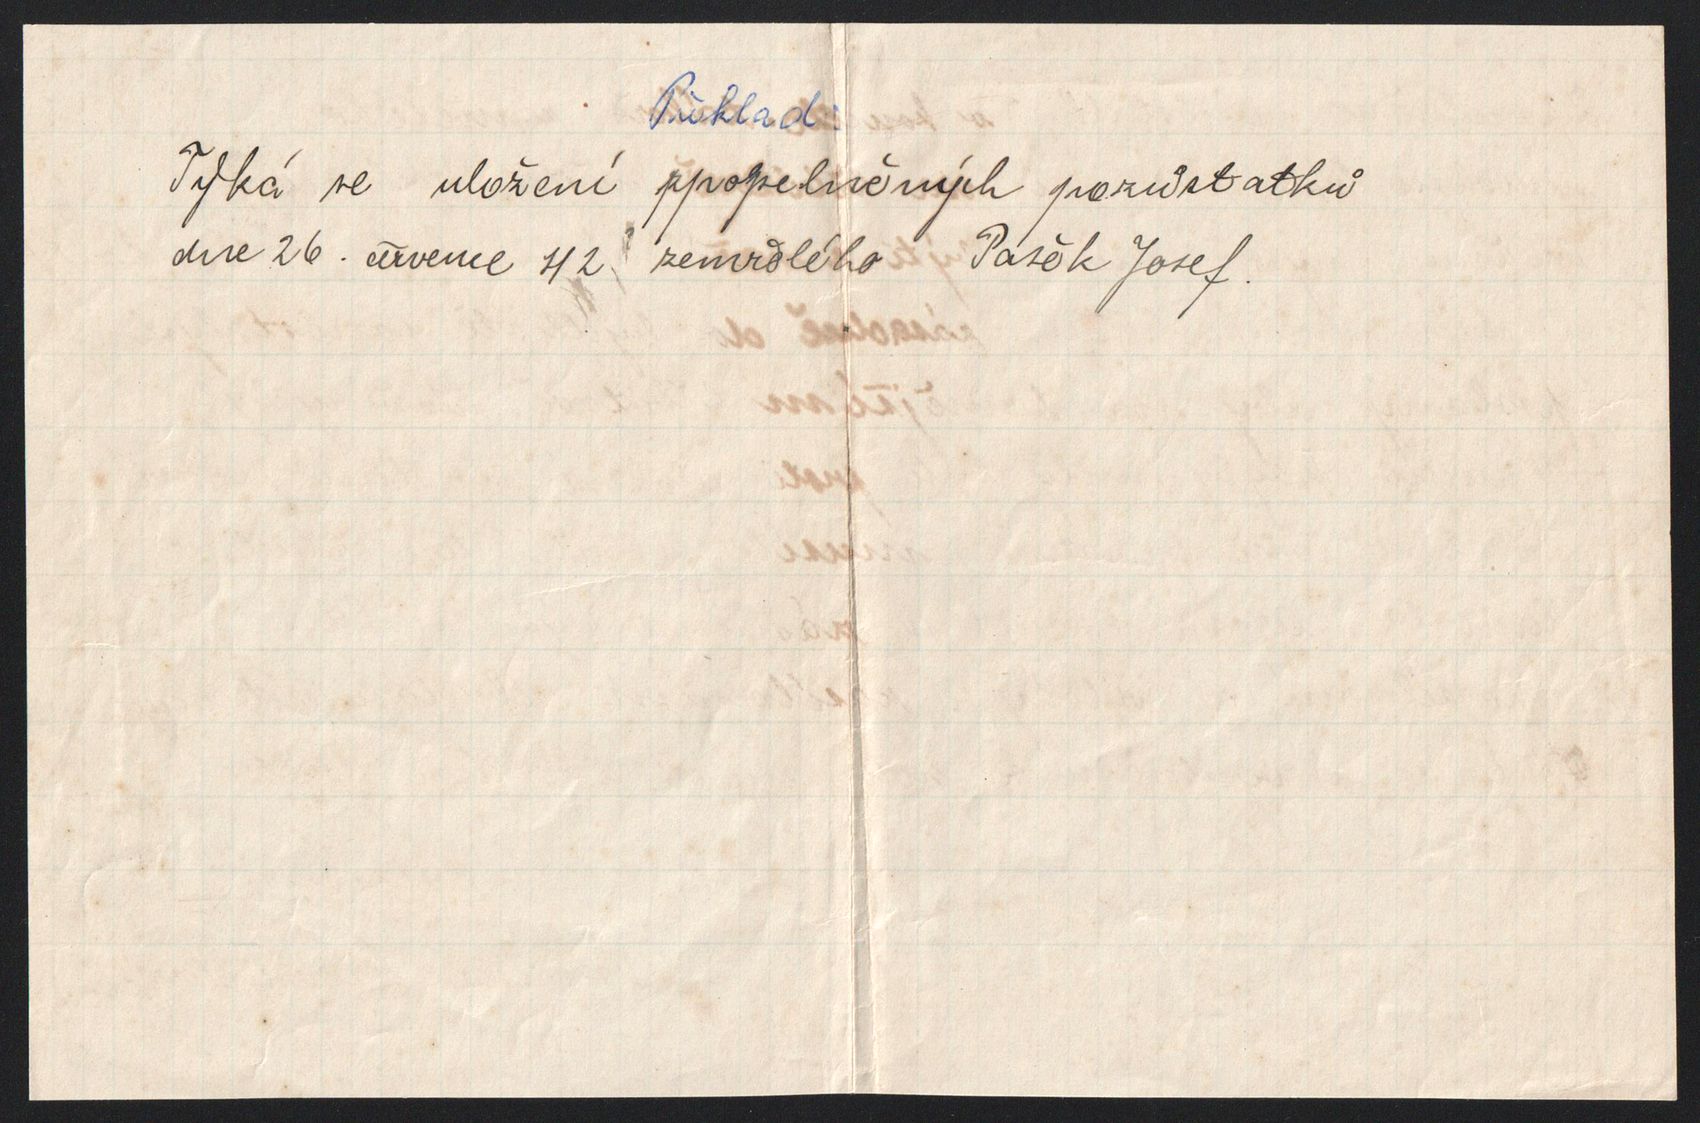 Překlad:
Týká se uložení zpopelněných pozůstatků
dne 26. července 42 zemřelého Pašek Josef.